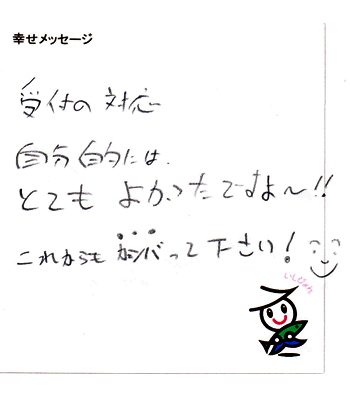 幸せメッセージ
受付の対応
自分的には、
とても よかったですよ～!!
これからも ガンバって下さい!